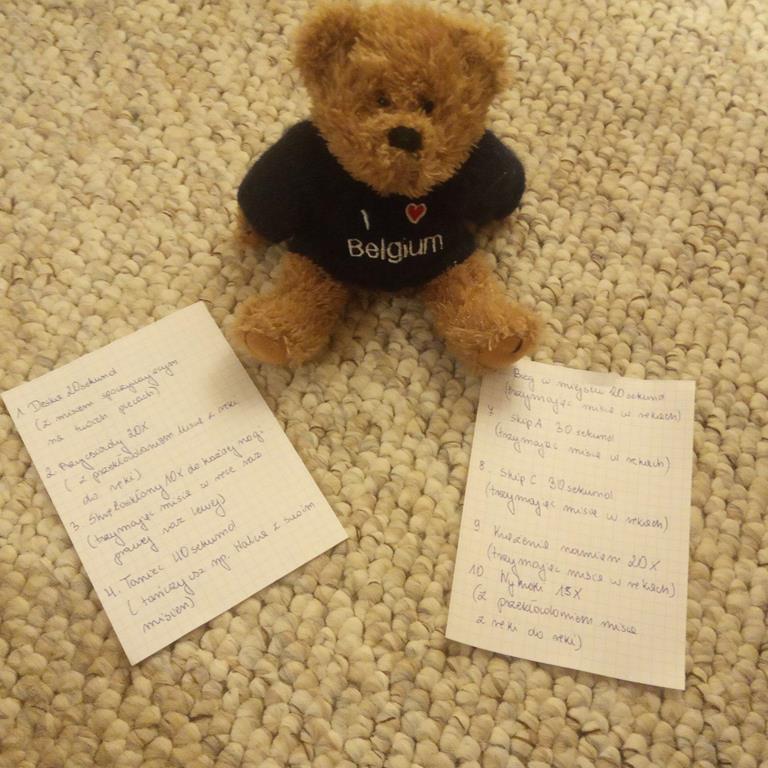 I ♥
Belgium
1. Deska 20 sekund
(z misiem spoczywającym
na twoich plecach)
2. Przysiady 20X
(z przekładaniem misia z ręki
do ręki)
3. Skłony 10X do każdej nogi
(trzymając misia w ręce raz
prawej raz lewej)
4. Taniec 40 sekund
(tańczysz np. walca z swoim
misiem)
Bieg w miejscu 20 sekund
(trzymając misia w rękach)
7. Skip A 30 sekund
(trzymając misia w rękach)
8. Skip C 30 sekund
(trzymając misia w rękach)
9. Krążenia ramion 20X
(trzymając misia w rękach)
10. Wymachy 15X
(z przekładaniem misia
z ręki do ręki)